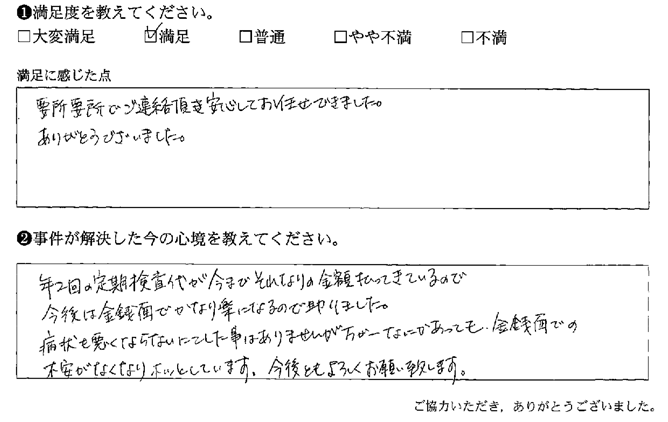 ❶満足度を教えてください。
□大変満足 ☑満足 □普通 □やや不満 □不満
満足に感じた点
要所要所でご連絡頂き安心してお任せできました。
ありがとうございました。
❷事件が解決した今の心境を教えてください。
年2回の定期検査代が今までそれなりの金額払ってきているので
今後は金銭面でかなり楽になるので助かりました。
病状も悪くならないにこした事はありませんが万が一なにかあっても、金銭面での
不安がなくなりホッとしています。今後ともよろしくお願い致します。
ご協力いただき，ありがとうございました。